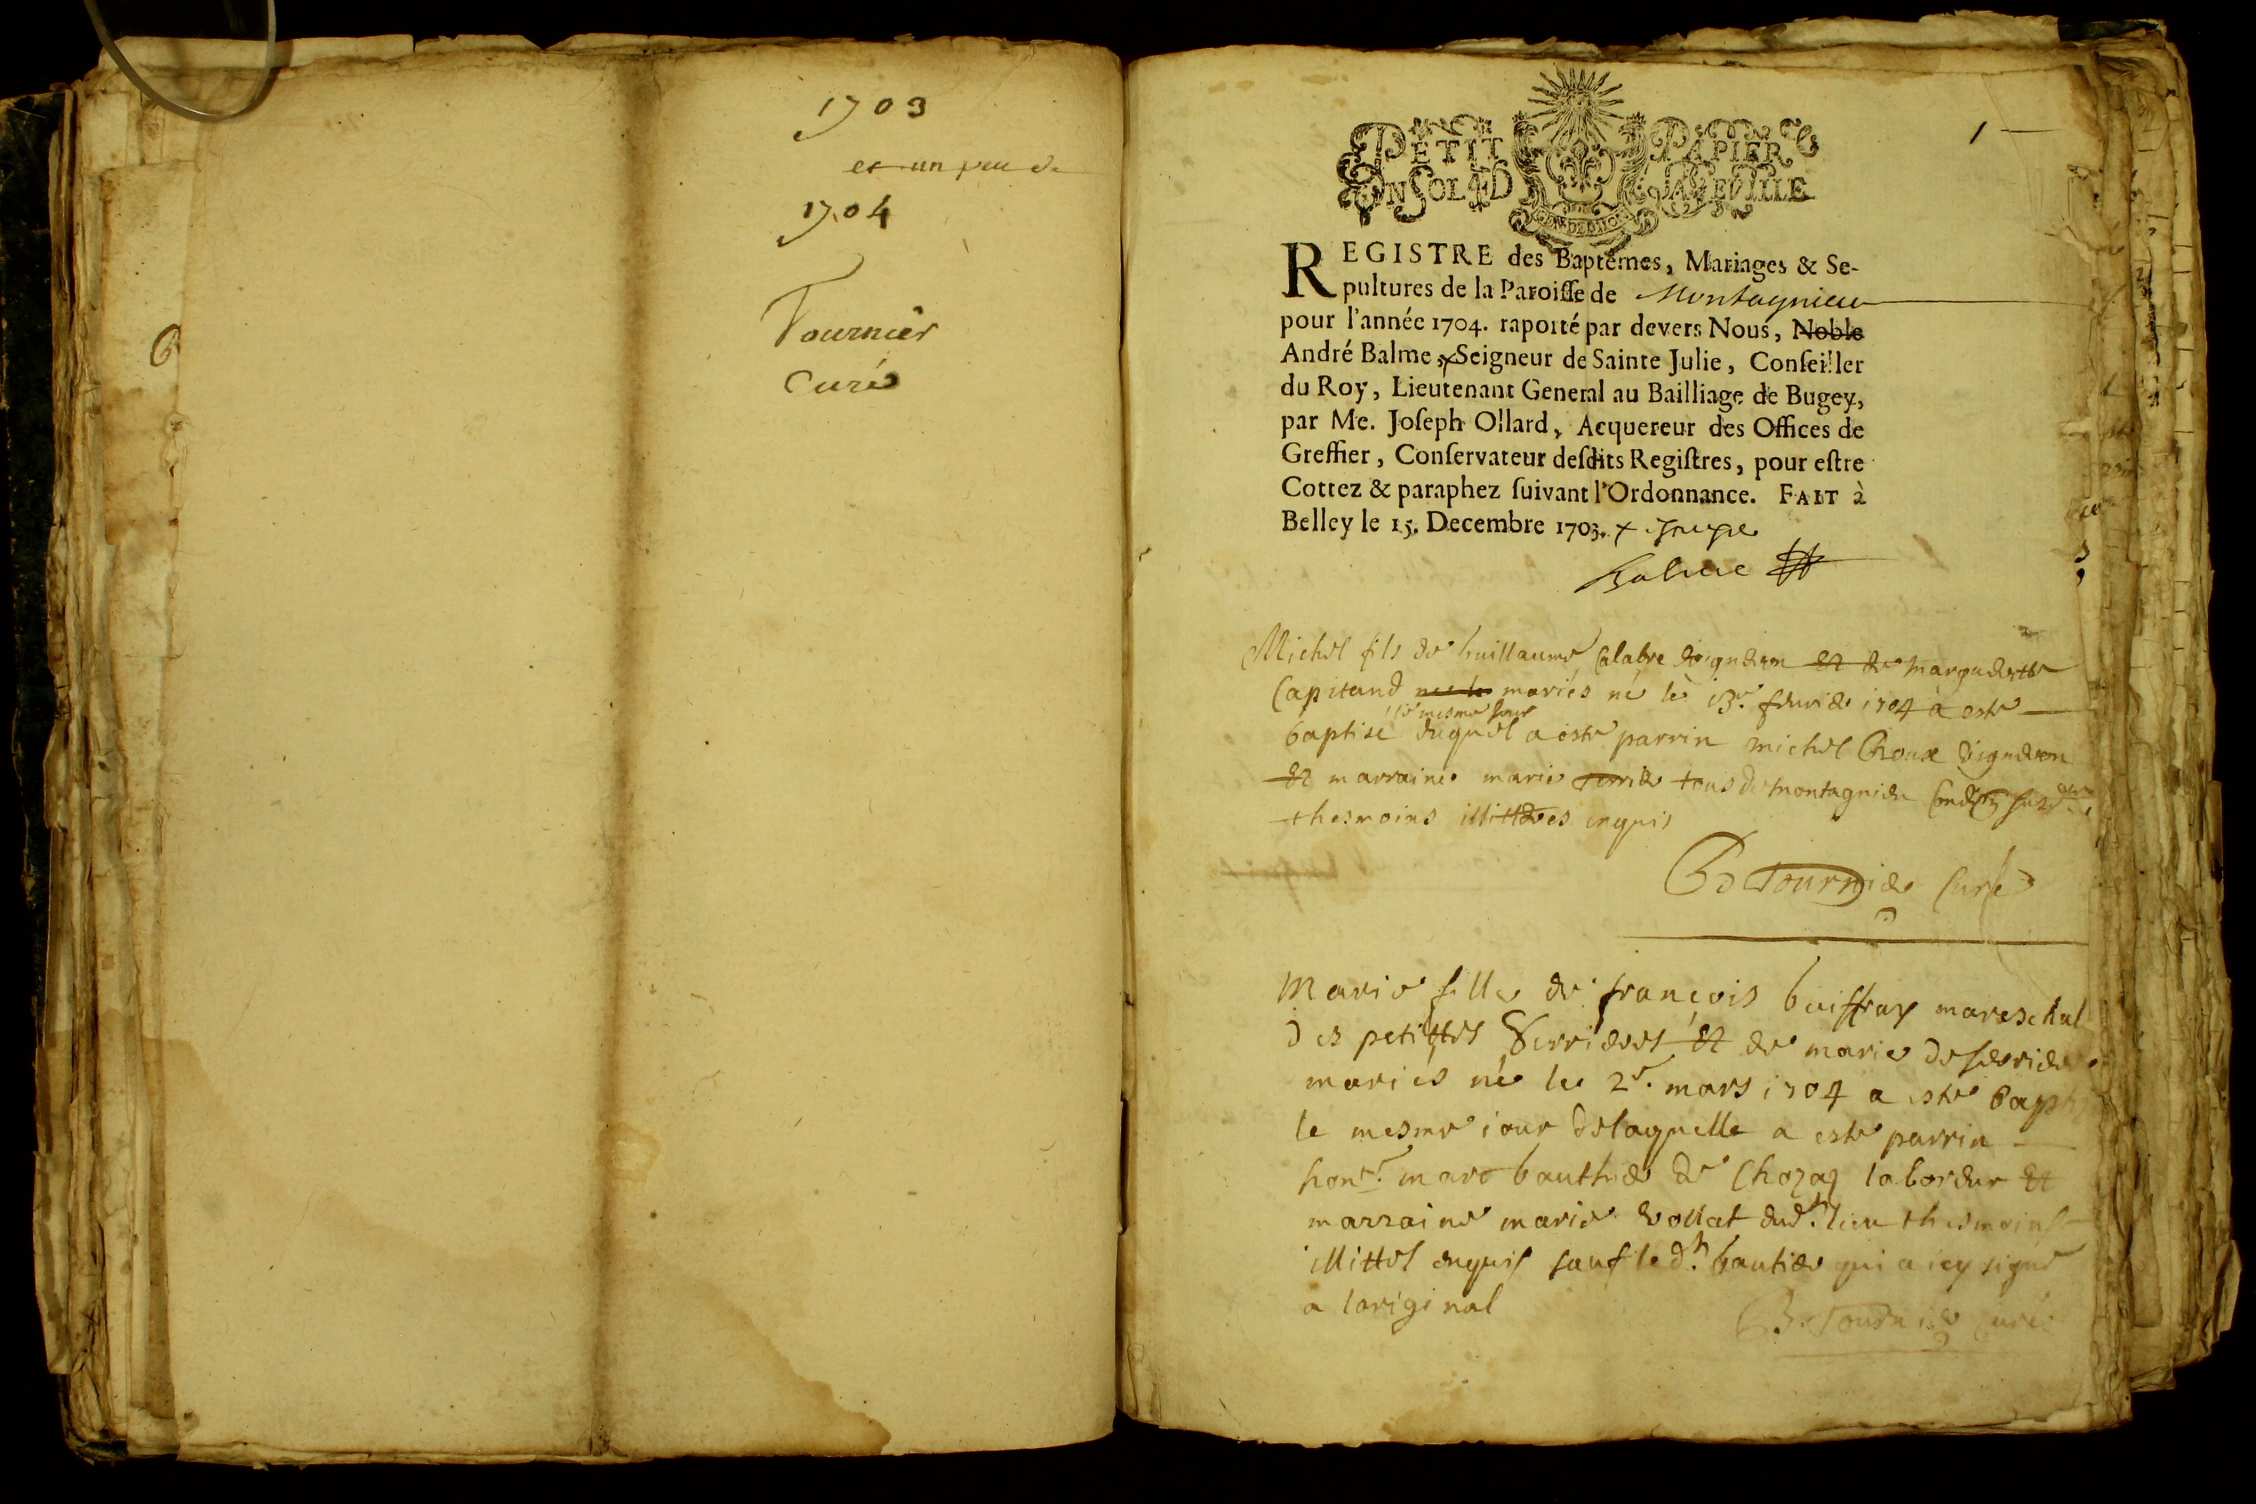 1703
et un peu de
1704
Fournier
Curé
1
PETIT PAPIER
UN SOL 4 D LA FEUILLE
REGISTRE des Baptêmes, Mariages & Se-
pultures de la Paroisse de Montagnieu
pour l'année 1704. raporté par devers Nous, Noble
André Balme, x Seigneur de Sainte Julie, Conseiller
du Roy, Lieutenant General au Bailliage de Bugey,
par Me. Joseph Ollard, Acquereur des Offices de
Greffier, Conservateur desdits Registres, pour estre
Cottez & paraphez suivant l'Ordonnance. FAIT à
Belley le 15. Decembre 1703. x
Balme
Michel fils de guillaume Calabre et de margueritte
Capitand mariés né le 13e. fevrier 1704 a este
baptisé le mesme jour duquel a este parrin michel Choux
et marraine marie tous de montagnieu
thesmoins illitteres enquis
Fournier Curé
Marie fille de françois buiffray mareschal
des petittes Serrieres et de marie
mariés née le 2e. mars 1704 a este bapt
le mesme iour de laquelle a este parrin
hone. marc bauthier de Chozas laboreur et
marraine marie vollat dud. lieu thesmoins
illittes enquis sauf led. bautier qui a icy signé
a loriginal
Fournier curé